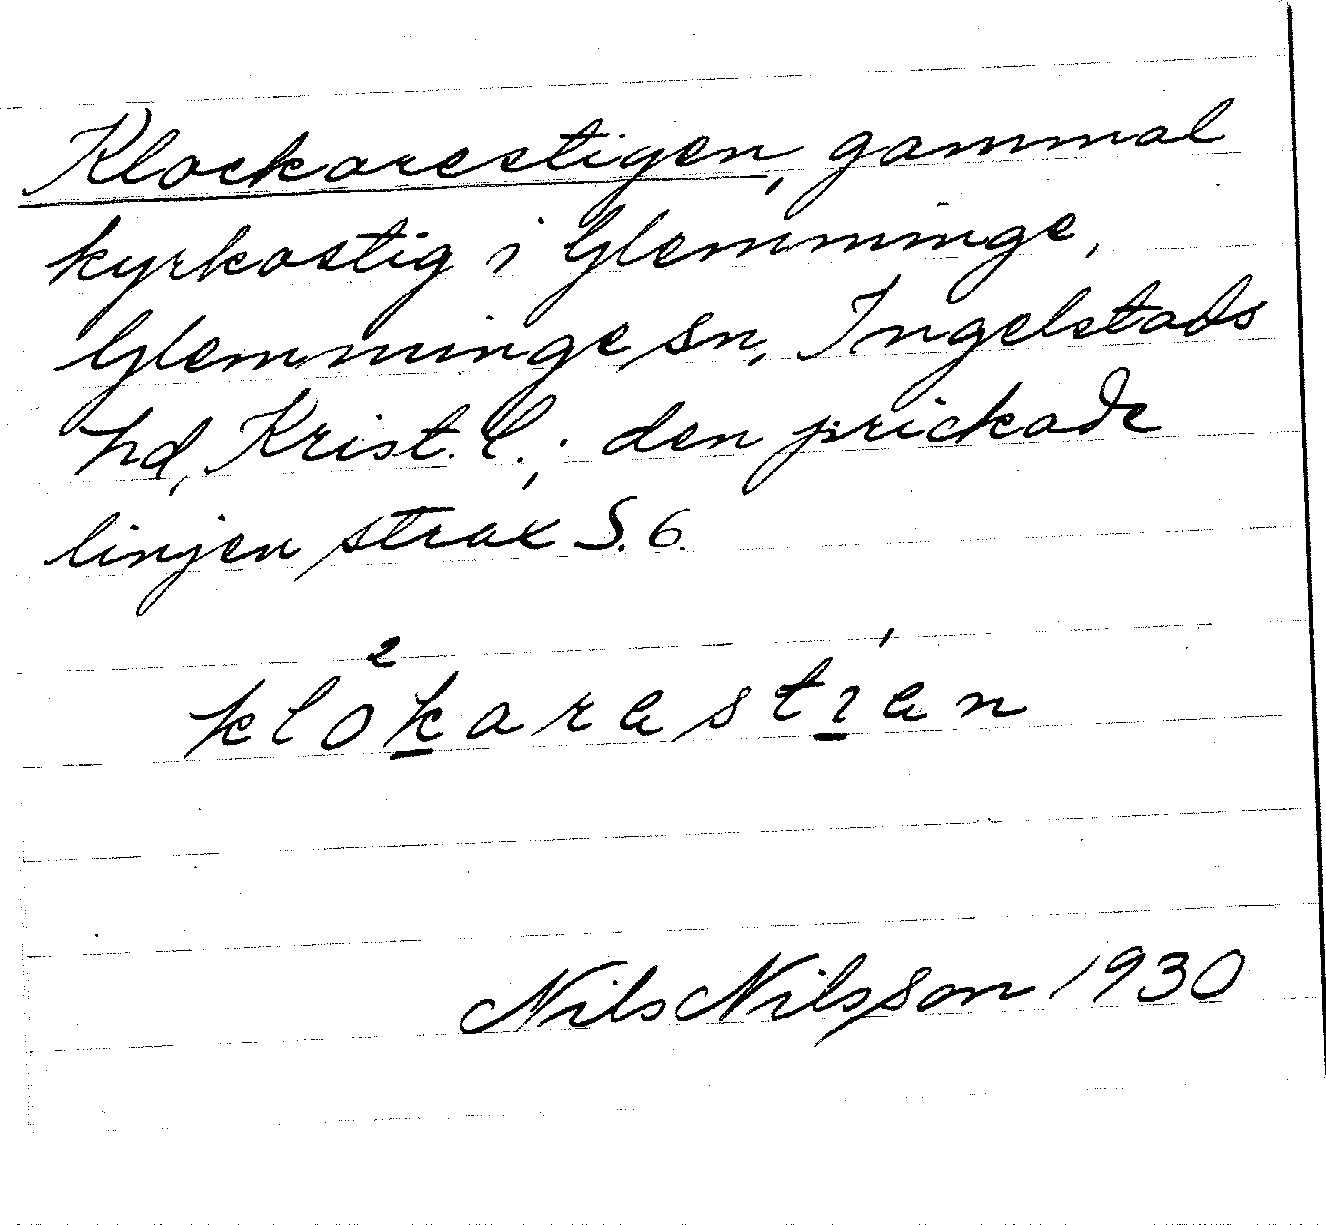 Klockarestigen, gammal
kyrkostig i Glemminge,
Glemminge sn, Ingelstads
hd, Krist. l.; den prickade
linjen strax S. 6.
klo²karastı'an
Nils Nilsson 1930